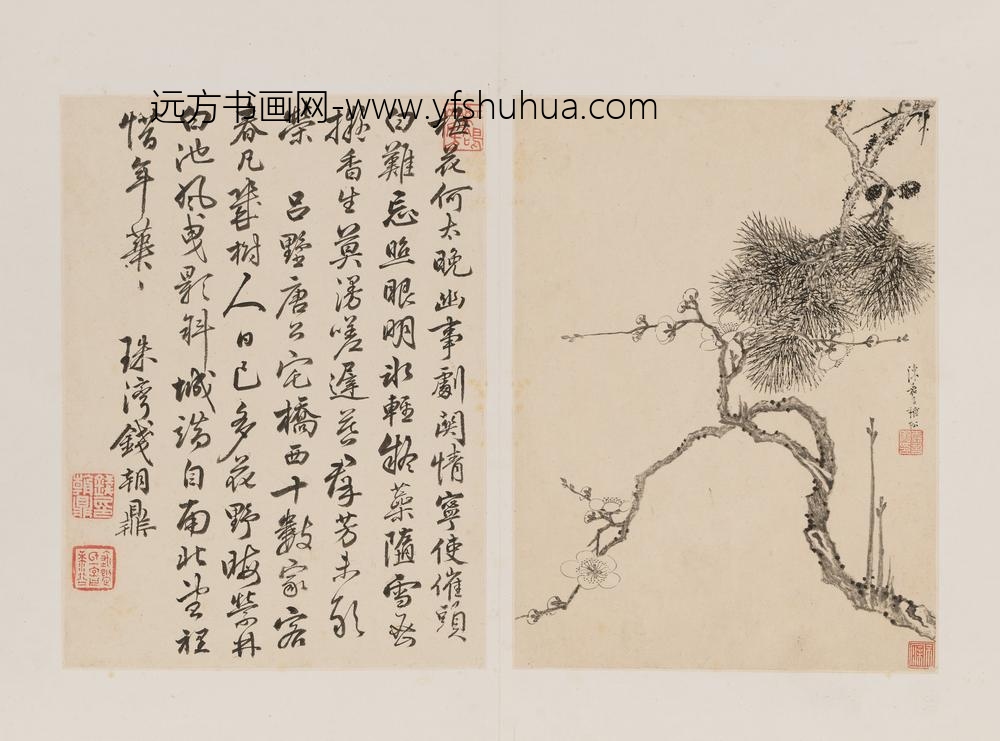 远方书画网-www.yfshuhua.com
梅花何太晚幽事劇関情寧使催頭
白難忘照眼明冰輕蘂隨雪
擬香生莫漫嗟遲暮羣芳未
榮　呂墅唐公宅橋西十數家客
春凡幾樹人日已多花野晦
白池風曳影斜城端自南北
惜年華　珠灣錢朝鼎